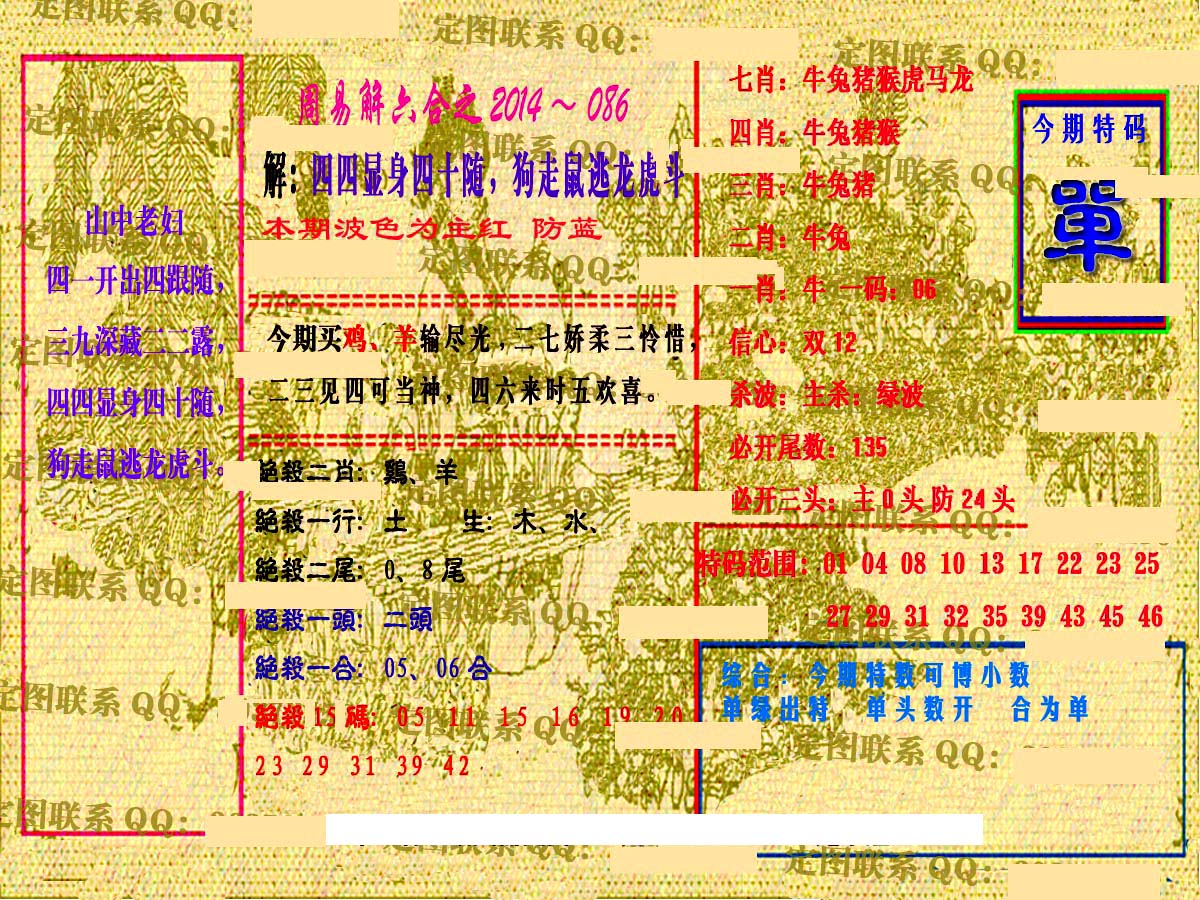 周易解六合之2014～086
山中老妇
四一开出四跟随,
三九深藏二二露,
四四显身四十随,
狗走鼠逃龙虎斗。
解：四四显身四十随，狗走鼠逃龙虎斗
本期波色为主红 防蓝
今期买鸡、羊输尽光,二七娇柔三怜惜;
二三见四可当神，四六来时五欢喜。
絕殺二肖：鷄、羊
絕殺一行：土 生：木、水、
絕殺二尾：0、8尾
絕殺一頭：二頭
絕殺一合：05、06合
絕殺15碼：05 11 15 16 19 20
23 29 31 39 42
七肖：牛兔猪猴虎马龙
四肖：牛兔猪猴
三肖：牛兔猪
二肖：牛兔
一肖：牛 一码：06
信心：双12
杀波：主杀：绿波
必开尾数：135
必开三头：主0头防24头
今期特码
單
特码范围：01 04 08 10 13 17 22 23 25
27 29 31 32 35 39 43 45 46
综合：今期特数可博小数
单绿出特 单头数开 合为单
定图联系QQ：
定图联系QQ：
定图联系QQ：
定图联系QQ：
定图联系QQ：
定图联系QQ：
定图联系QQ：
定图联系QQ：